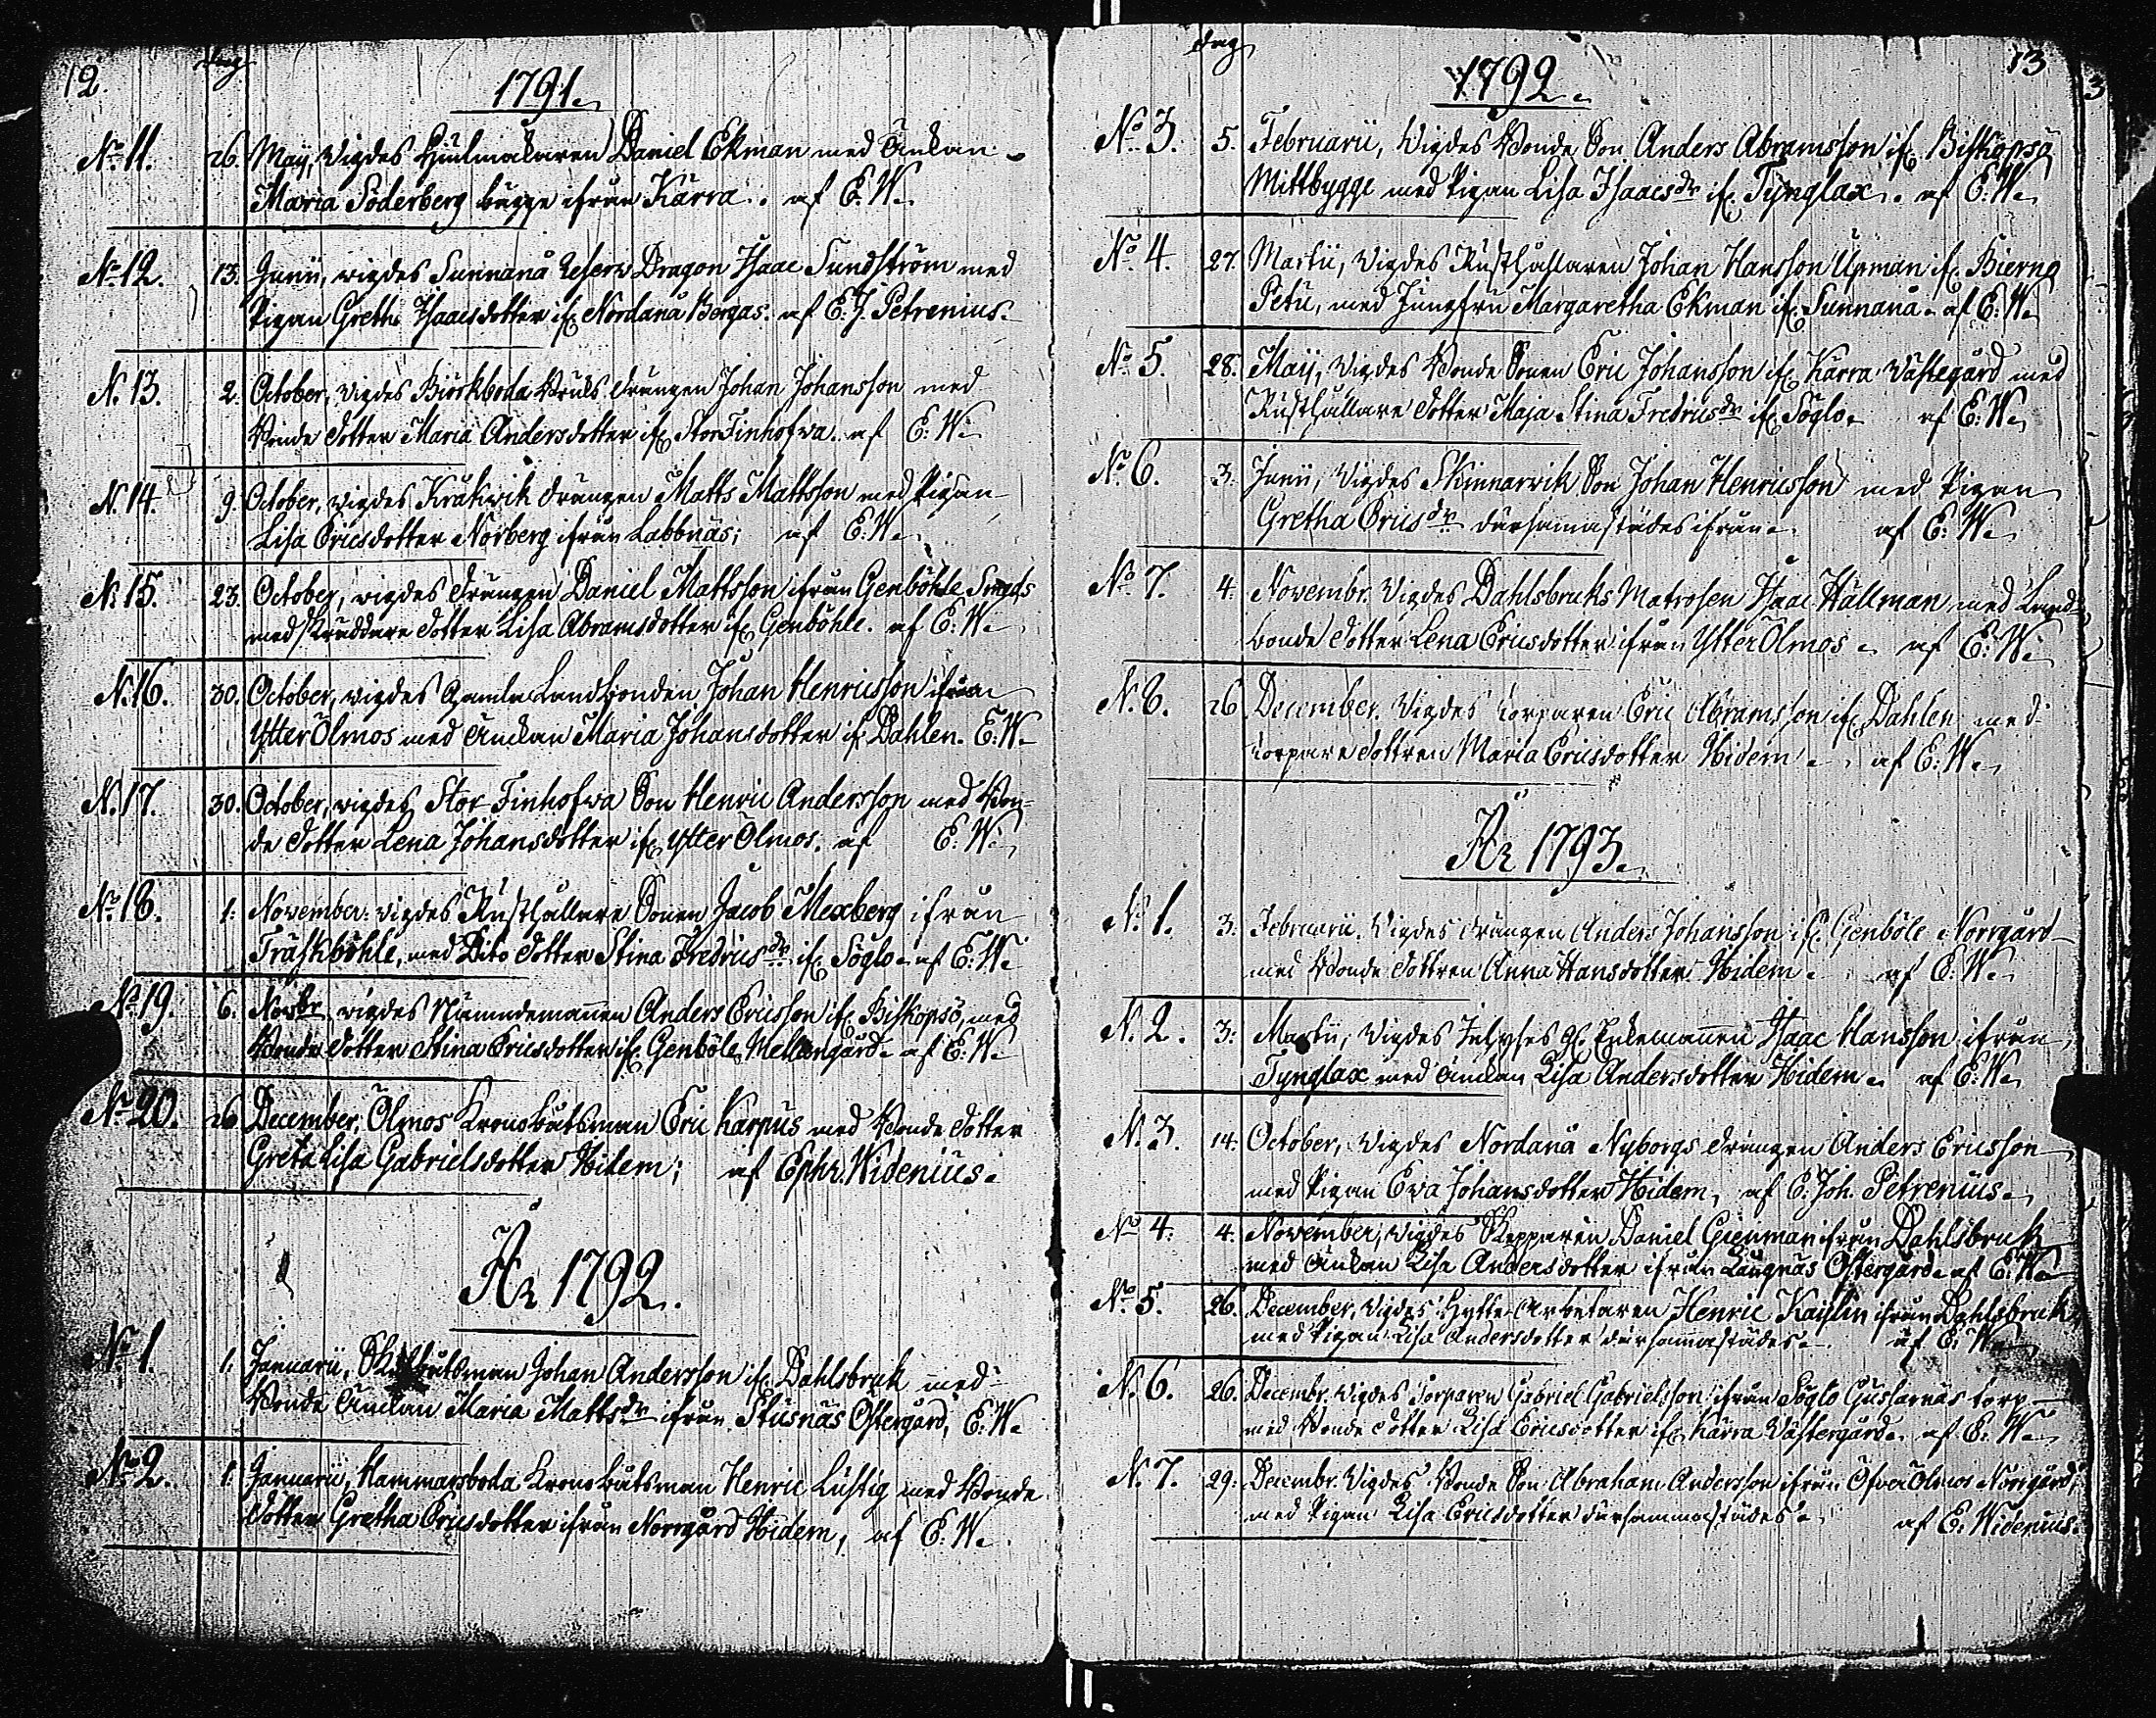 12.
dag
1791.
No 11. 26. Maÿ, Vigdes Hjulmakaren Daniel Ekman med Änkan
Maria Söderberg bägge ifrån Kärra. af E. W.
No 12. 13. Junii, vigdes Sunnanå Reserv Dragon Isaac Sundström med
Pigan Greth. Isaacsdotter if. Nordanå Bergas. af E. J. Petrenius.
N. 13. 2. October, vigdes Biörkboda Bruks drängen Johan Johansson med
Bonde dotter Maria Andersdotter if. StorFinhofwa. af E: W.
N. 14. 9. October, vigdes Kråkvik drängen Matts Mattsson med Pigan
Lisa Ericsdotter Norberg ifrån Labbnäs; af E: W.
N. 15. 23. October, vigdes drängen Daniel Mattsson ifrån Genböhle Smeds
med Skräddare dotter Lisa Abramsdotter if. Genböhle. af E: W.
N. 16. 30. October, vigdes Gamla Landbonden Johan Henricsson ifrån
Ytter Ölmos med Änckan Maria Johansdotter if. Dahlen. E: W.
N. 17. 30. October, vigdes Stor Finhofwa Son Henric Andersson med Bon-
de dotter Lena Johansdotter if. Ytter Ölmos. af E: W.
No 18. 1. November. vigdes Rusthållare Sonen Jacob Mexberg ifrån
Träskböhle, med Dito dotter Stina Fredricsdr if. Söglo. af E: W.
No 19. 6. Novbr. vigdes Nämndemannen Anders Ericsson if. Biskopsö, med
Bonde dotter Stina Ericsdotter if. Genböle Mellangård. af E: W.
No 20. 26. December, Ölmos Kronobåtsman Eric Karpus med Bonde dotter
Greta Lisa Gabrielsdotter Ibidem; af Ephr. Widenius.
År 1792.
No 1. 1. Januarii, båtsman Johan Andersson if. Dahlsbruk med
Bonde Änckan Maria Mattsdr ifrån Stusnäs Östergård, E: W.
No 2. 1. Januarii, Hammarsboda Krono båtsman Henric Lustig med Bonde
dotter Gretha Ericsdotter ifrån Norrgård Ibidem, af E: W.
dag
1792.
13
No 3. 5. Februarii, Vigdes Bonde Son Anders Abramsson if. Biskopsö
Mittbygge med Pigan Lisa Isaacsdr if. Tynglax. af E: W.
No 4. 27. Martii, Vigdes Rusthållaren Johan Hansson Upman if. Bierno
Petu, med Jungfru Margaretha Ekman if. Sunnanå. af E: W.
No 5. 28. Maÿ, Vigdes Bonde Sonen Eric Johansson if. Kärra Wästegård med
Rusthållare dotter Maja Stina Fredricsdr if. Söglo. af E: W.
No 6. 3. Junii, Vigdes Skinnarvik Son Johan Henricsson med Pigan
Gretha Ericsdr därsammastädes ifrån. af E: W.
No 7. 4. Novembr. Vigdes Dahlsbruks Matrosen Isaac Hällman med Land-
bonde dotter Lena Ericsdotter ifrån Ytter Ölmos. af E: W.
N. 8. 26 December. Vigdes Torparen Eric Abramsson if. Dahlen med
Torpare dottren Maria Ericsdotter Ibidem. af E: W.
År 1793.
N. 1. 3. Februarii. Vigdes drängen Anders Johansson if. Genböle Norrgård
med Bonde dottren Anna Hansdotter Ibidem. af E: W.
N. 2. 3. Martii, Vigdes Enkemannen Isaac Hansson ifrån
Tynglax med Änckan Lisa Andersdotter Ibidem. af E: W.
N. 3. 14. October, Vigdes Nordanå Nyborgs drängen Anders Ericsson
med Pigan Eva Johansdotter Ibidem, af E: Joh. Petrenius.
No 4. 4. November, Vigdes Skepparen Daniel Gienman ifrån Dahlsbruk
med Änkan Lisa Andersdotter ifrån Långnäs Östergård. af E: W.
No 5. 26. December, Vigdes Hytte Arbetaren Henric Kaijlin ifrån Dahlsbruk
med Pigan Lisa Andersdotter därsammastädes. af E: W.
N. 6. 26. Decembr. Vigdes Torparen Gabriel Gabrielsson ifrån Söglo torp
med Bonde dotter Lisa Ericsdotter if. Kärra Västergård. af E: W.
N. 7. 29. Decembr. Vigdes Bonde Son Abraham Andersson ifrån Öfver Ölmos Norrgård,
med Pigan Lisa Ericsdotter därsammastädes. af E. Widenius.